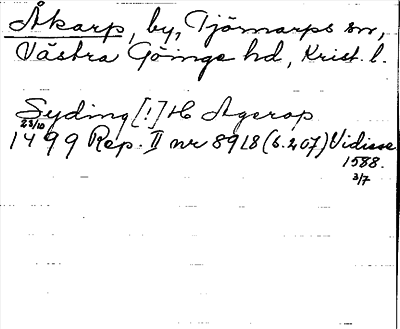 Åkarp, by, Tjörnarps sn,
Västra Göinge hd, Krist. l.
Syding [!] H Agerop
23/10
1499 Rep. II nr 8918 (6.207) Vidisse
1588.
3/7